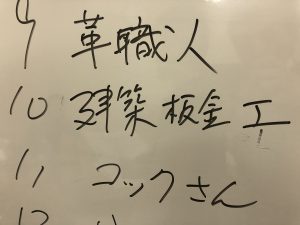 9 革職人
10 建築板金工
11 コックさん
12